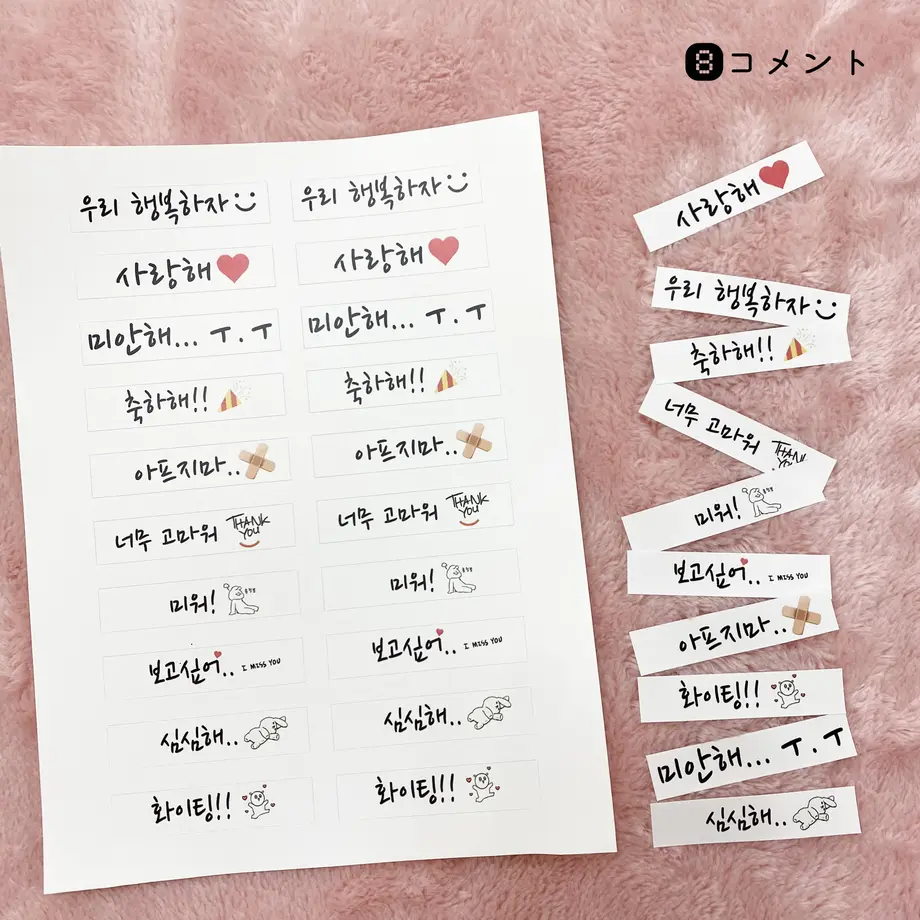 8コメント
우리 행복하자 우리 행복하자
사랑해 사랑해
미안해... ㅜ.ㅜ 미안해... ㅜ.ㅜ
축하해!! 축하해!!
아프지마.. 아프지마..
너무 고마워 THANK YOU 너무 고마워 THANK YOU
미워! 미워!
보고싶어.. I MISS YOU 보고싶어.. I MISS YOU
심심해.. 심심해..
화이팅!! 화이팅!!
사랑해
우리 행복하자
축하해!!
너무 고마워 THANK YOU
미워!
보고싶어.. I MISS YOU
아프지마..
화이팅!!
미안해... ㅜ.ㅜ
심심해..